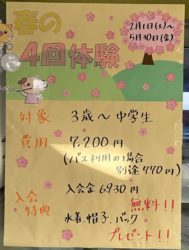 春の
4回体験
2月1日(土)～
5月30日(金)
対象 3歳～中学生
費用 7,200円
(バス利用の場合
別途770円)
入会特典
入会金6930円
無料!!
水着、帽子、バック
プレゼント!!